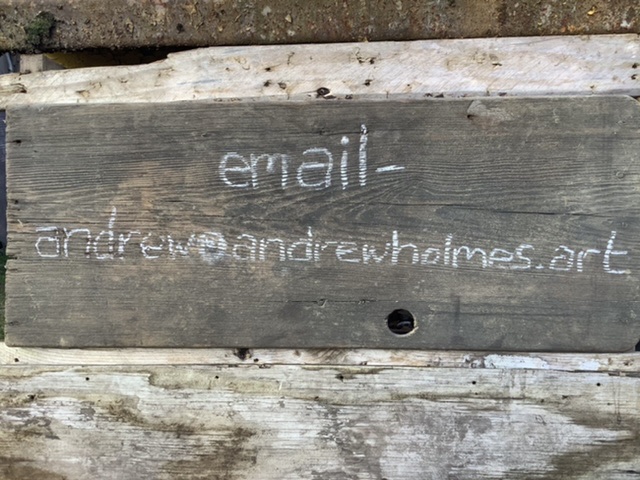 email-
andrew@andrewholmes.art